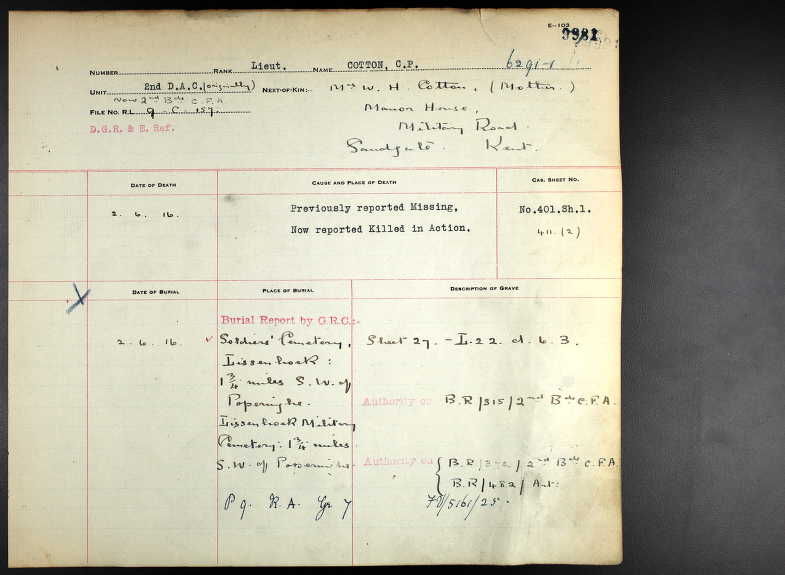 E-103
NUMBER RANK Lieut. NAME COTTON, C.P. 6291-1
UNIT 2nd D.A.C. (originally) NEXT-OF-KIN:- Mrs W. H. Cotton, (Mother.)
Now 2nd Bde C.F.A
Manor House,
FILE No. R.L. 9. C. 157.
D.G.R. & E. Ref.
Military Road.
Sandgate. Kent.
DATE OF DEATH CAUSE AND PLACE OF DEATH CAS. SHEET No.
2. 6. 16. Previously reported Missing, No.401.Sh.1.
Now reported Killed in Action. 411. (2)
DATE OF BURIAL PLACE OF BURIAL DESCRIPTION OF GRAVE
Burial Report by G.R.C.:-
2. 6. 16. Soldiers' Cemetery, Sheet 27. - L. 22. d. 6. 3.
Lissenhoek:
1 3/4 miles S. W. of
Poperinghe. Authority on B.R/315/2nd Bde C.F.A.
Lissenhoek Military
Cemetery. 1 3/4 miles
S.W. of Poperinghe. Authority on B.R/ / 2nd Bde C.F.A.
B.R/482/ Art:
P 9. R. A. Gr 7